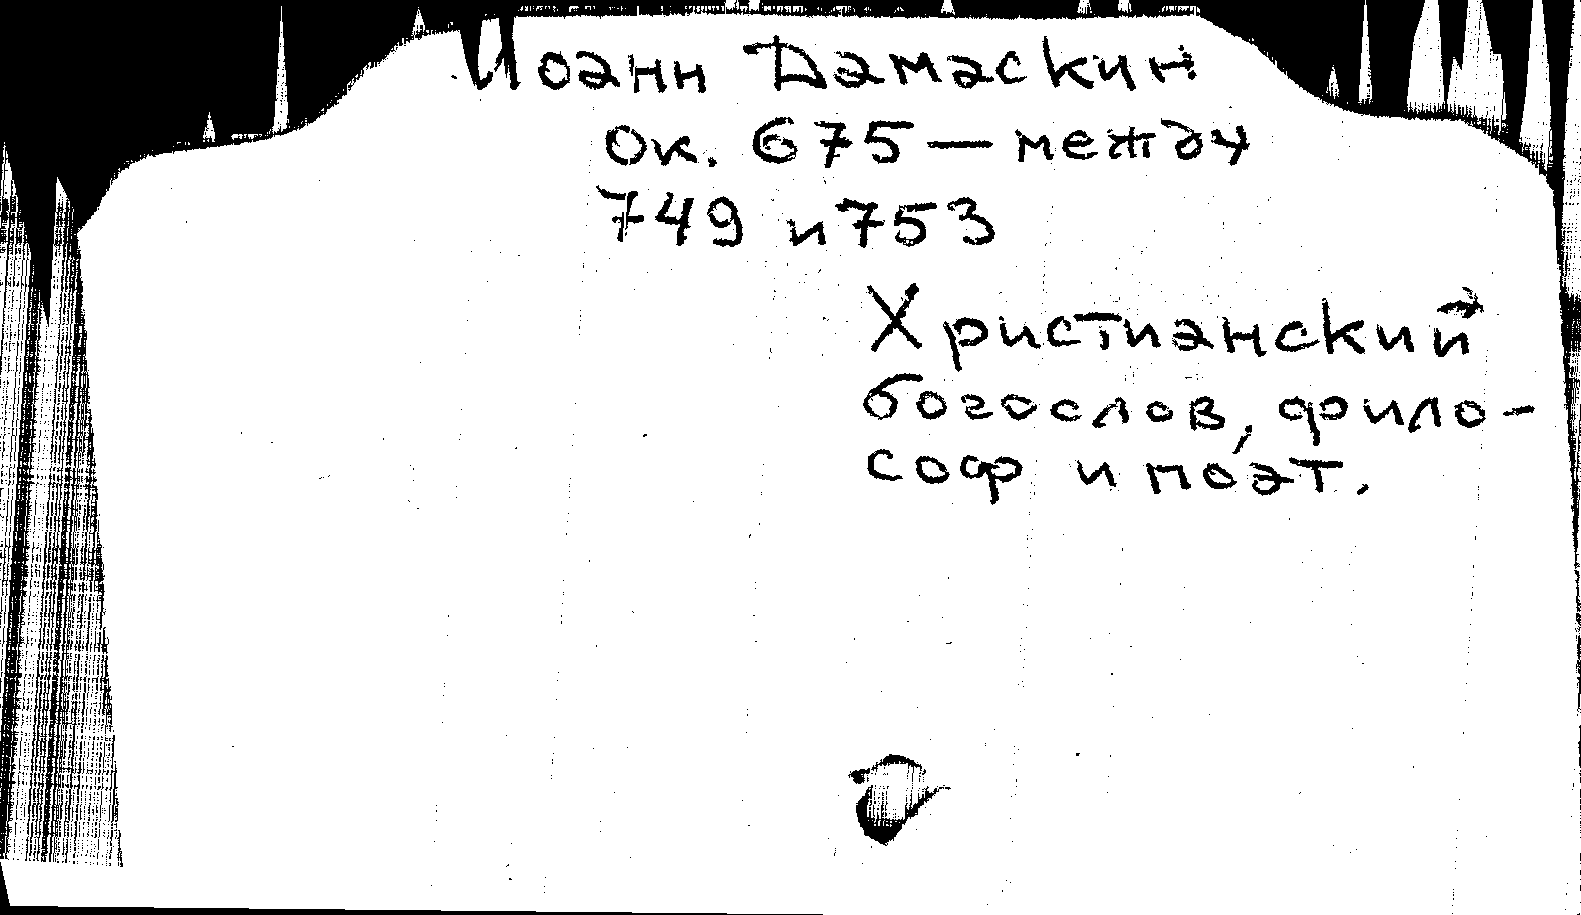 Иоанн Дамаскин
Ок. 675 — между
749 и 753
Христианский
богослов, фило-
соф и поэт.